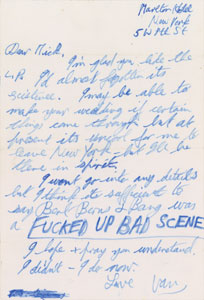 Marlton Hotel
New York
5 W 8th St
Dear Mick,
I'm glad you like the
L.P. I'd almost forgotten its
existence. I may be able to
make your wedding if certain
things come through but at
present its urgent for me to
leave New York - but I'll be
there in spirit.
I won't go into any details
but I think its sufficient to
say Bert Berns & Bang was
a FUCKED UP BAD SCENE
I hope & pray you understand,
I didn't - I do now.
Love Van